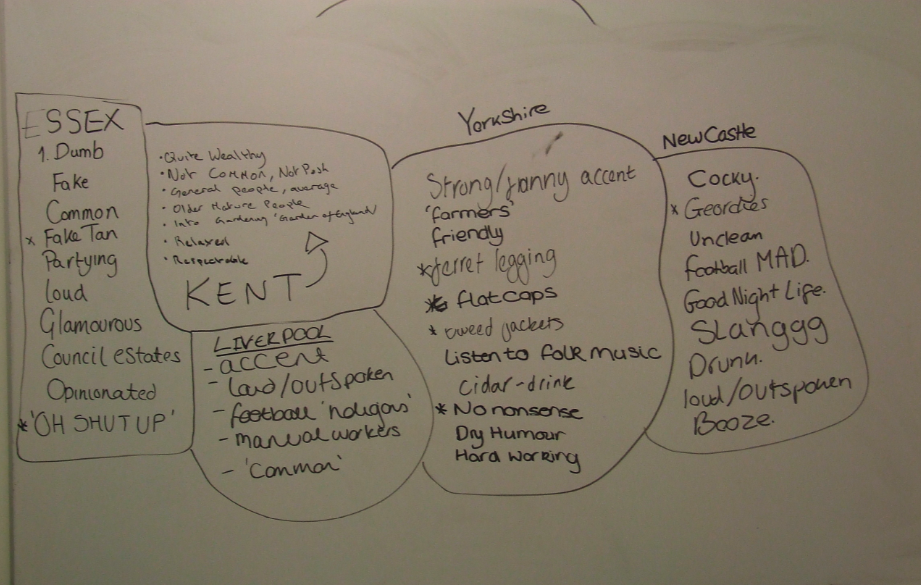 ESSEX
1. Dumb
Fake
Common
* Fake Tan
Partying
loud
Glamourous
Council estates
Opinionated
* 'OH SHUT UP'
• Quite Wealthy
• Not Common, Not Posh
• General people, average
• Older Mature People
• Into Gardening 'Garden of England'
• Relaxed
• Respectable
KENT
LIVERPOOL
- accent
- loud/outspoken
- football
- manual workers
- 'Common'
Yorkshire
Strong/ accent
'farmers'
friendly
* ferret legging
* flat caps
* tweed jackets
Listen to folk music
cidar - drink
* No nonsense
Dry Humour
Hard working
NewCastle
Cocky.
* Geordies
Unclean
football MAD.
Good Night Life.
Slanggg
Drunk.
loud/outspoken
Booze.